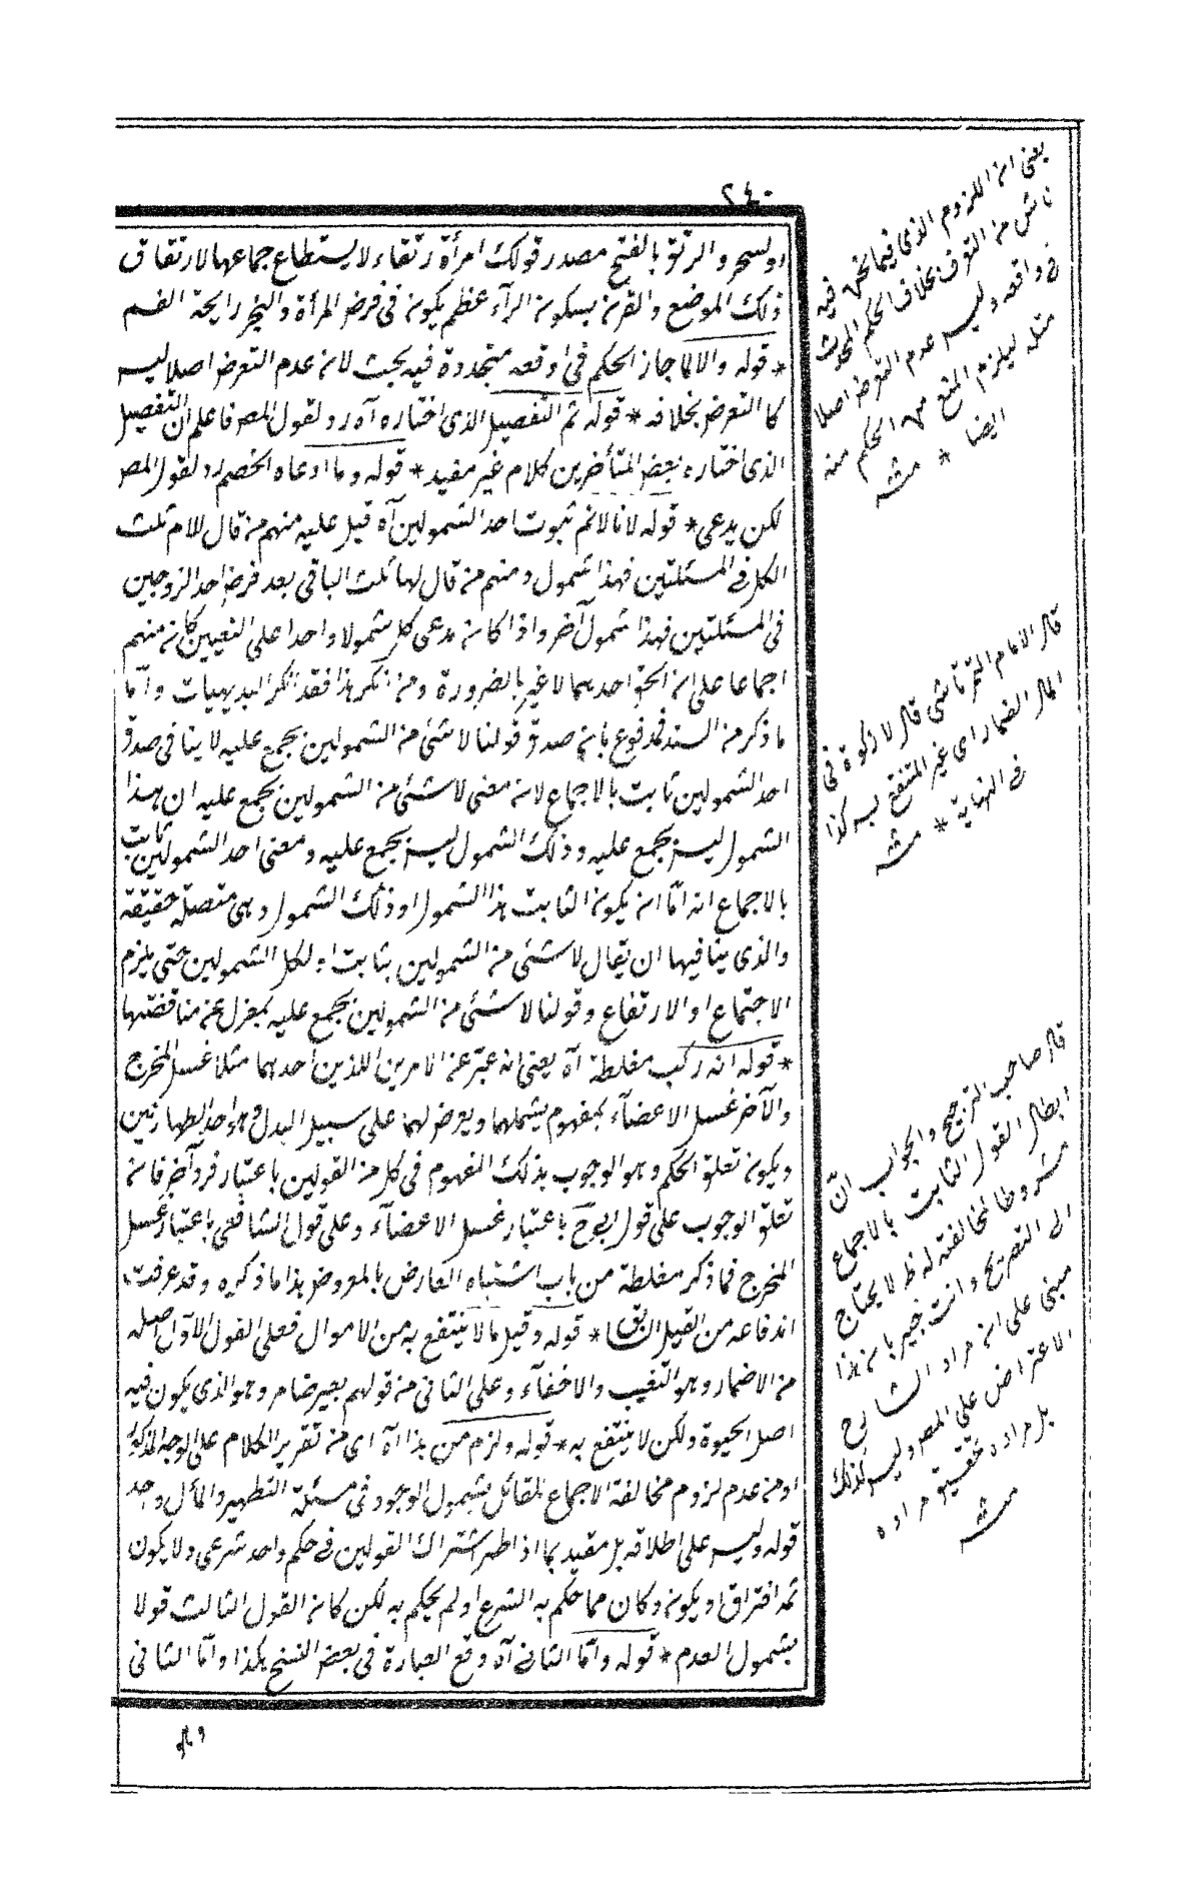 ٢٤٠
او لسحر والرتق بالفتح مصدر قولك امرأة رتقاء لا يستطاع جماعها لارتقاق
ذلك الموضع والقرن بسكون الرآء عظم يكون فى فرض المرأة والبخر رايحة الفم
* قوله والا لما جاز الحكم فى واقعه متجددة فيه بحث لان عدم التعرض اصلا ليس
كا التعرض بخلافه * قوله ثم التفصيل الذى اختاره آه رد لقول المصر فاعلم ان التفصيل
الذى اختاره بعض المتأخرين كلام غير مفيد * قوله وما ادعاه الخصم رد لقول المص
لكن يدعى * قوله لانا لانم ثبوت احد الشمولين آه قيل عليه منهم من قال للام ثلث
الكل فى المسئلتين فهذا شمول ومنهم من قال لها ثلث الباقى بعد فرض احد الزوجين
فى المسئلتين فهذا شمول آخر واذا كان مدعى كل شمولا واحدا على التعيين كان منهم
اجماعا على ان الحق احدهما لا غير بالضرورة ومن انكر هذا فقد انكر البديهيات واما
ما ذكر من السند فمدفوع بان صدق قولنا لا شئ من الشمولين بمجمع عليه لا ينافى صدق
احد الشمولين ثابت بالاجماع لان معنى لا شئ من الشمولين بمجمع عليه ان هذا
الشمول ليس بمجمع عليه وذلك الشمول ليس بمجمع عليه ومعنى احد الشمولين ثابت
بالاجماع انه امّا ان يكون الثابت هذا الشمول او ذلك الشمول وهى منفصلة حقيقة
والذى ينافيها ان يقال لا شئ من الشمولين بثابت او لكل الشمولين حتى يلزم
الاجتماع او الارتفاع وقولنا لا شئ من الشمولين بمجمع عليه بمعزل عن مناقضتها
* قوله انه ركب مغلطة آه يعنى انه عبّر عن الامرين اللذين احدهما مثلا غسل المخرج
والآخر غسل الاعضآء بمفهوم يشملهما ويعرض لهما على سبيل البدل وهو احد الطهارتين
ويكون تعلق الحكم وهو الوجوب بذلك المفهوم فى كل من القولين باعتبار فرد آخر فان
تعلق الوجوب على قول ابى ح باعتبار غسل الاعضآء وعلى قول الشافعى باعتبار غسل
المخرج فما ذكر مغلطة من باب اشتباه العارض بالمعروض هذا ما ذكره وقد عرفت
اندفاعه من القيل السابق * قوله وقيل ما لا ينتفع به من الاموال فعلى القول الاول اصله
من الاضمار وهو التغيب والاخفآء وعلى الثانى من قولهم بعير ضامر وهو الذى يكون فيه
اصل الحيوة ولكن لا ينتفع به * قوله ولزم من هذا آه اى من تقرير الكلام على الوجه المذكور
او من عدم لزوم مخالفة الاجماع للقائل بشمول الوجود فى مسئلة التطهير والمأل واحد
قوله وليس على اطلاقه بل مقيد بما اذا ظهر اشتراك القولين فى حكم واحد شرعى ولا يكون
ثمه افتراق او يكون وكان مما حكم به الشرع او لم يحكم به لكن كان القول الثالث قولا
بشمول العدم * قوله وامّا الثانى آه وقع العبارة فى بعض النسخ هكذا وامّا الثانى
يعنى ان اللزوم الذى فيما نحن فيه
ناش من التوقف بخلاف الحكم المحدث
فى واقعه وليس عدم التعرض اصلا
مثله ليلزم المنع من الحكم منه
ايضا * منه
قال الامام التمرتاشى قال لا زكوة فى
المال الضمار اى غير المنتفع به كذا
فى النهاية * منه
قال صاحب الترجيح والجواب انّ
ابطال القول الثابت بالاجماع
مشروطا لمخالفته له ظ لا يحتاج
الى التصريح وانت خبير بان هذا
مبنى على ان مراد الشارح
الاعتراض على المصر وليس كذلك
بل مراده تحقيق مراده
منه